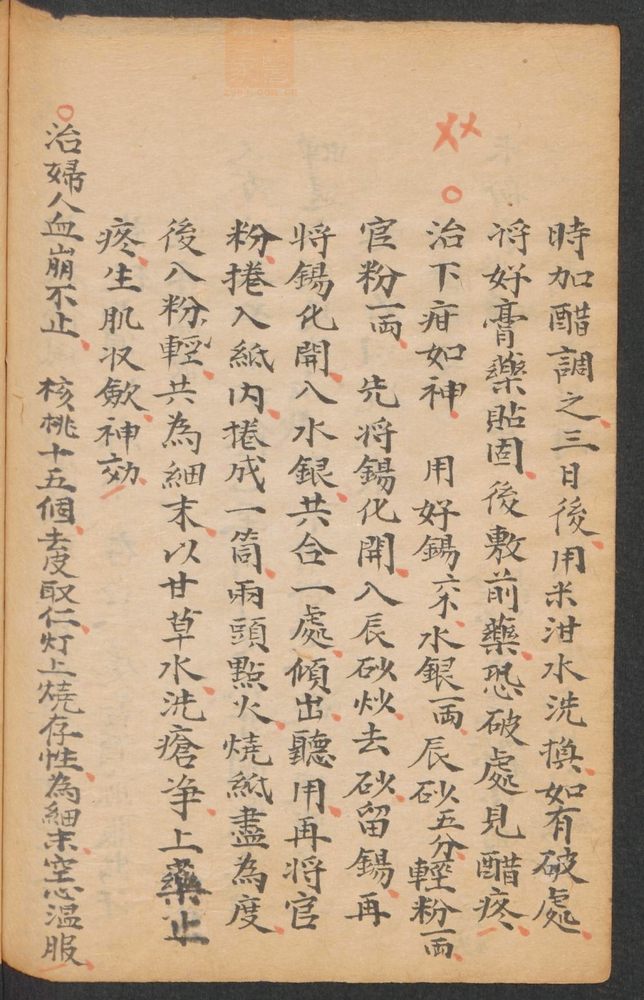 時加醋調之三日後用米泔水洗換如有破處
将好膏藥貼固後敷前藥恐破處見醋疼
治下疳如神　用好錫六木水銀一両辰砂五分輕粉一両
官粉一両　先将錫化開入辰砂炒去砂留錫再
将錫化開入水銀共合一處傾出聽用再将官
粉捲入紙内捲成一筒兩頭點火燒紙盡為度
後入粉輕共為細末以甘草水洗瘡净上藥止
疼生肌収歛神効
治婦人血崩不止　核桃十五個去皮取仁灯上燒存性為細末空心温服